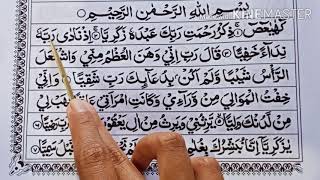 بِسْمِ اللهِ الرَّحْمٰنِ الرَّحِيْمِ
كٓهٰيٰعٓصٓ ذِكْرُ رَحْمَتِ رَبِّكَ عَبْدَهٗ زَكَرِيَّا اِذْ نَادٰى رَبَّهٗ
نِدَآءً خَفِيًّا قَالَ رَبِّ اِنِّيْ وَهَنَ الْعَظْمُ مِنِّيْ وَاشْتَعَلَ
الرَّاْسُ شَيْبًا وَّلَمْ اَكُنْۢ بِدُعَآئِكَ رَبِّ شَقِيًّا وَاِنِّيْ
خِفْتُ الْمَوَالِيَ مِنْ وَّرَآءِيْ وَكَانَتِ امْرَاَتِيْ عَاقِرًا فَهَبْ لِيْ
مِنْ لَّدُنْكَ وَلِيًّا يَّرِثُنِيْ وَيَرِثُ مِنْ اٰلِ يَعْقُوْبَ
يٰزَكَرِيَّآ اِنَّا نُبَشِّرُكَ بِغُلٰمِ
KINEMASTER